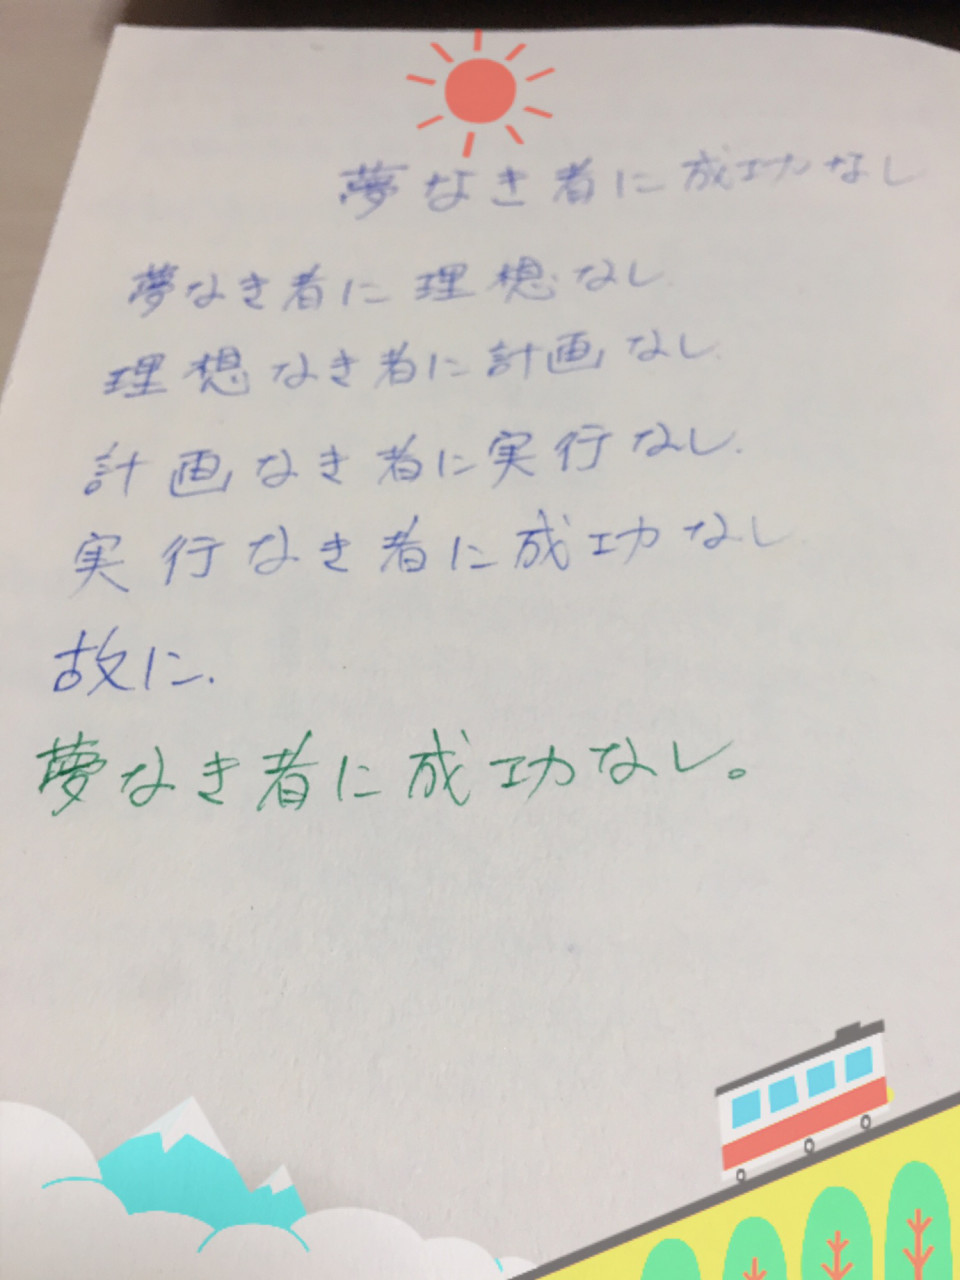 夢なき者に成功なし
夢なき者に理想なし.
理想なき者に計画なし.
計画なき者に実行なし.
実行なき者に成功なし.
故に.
夢なき者に成功なし。